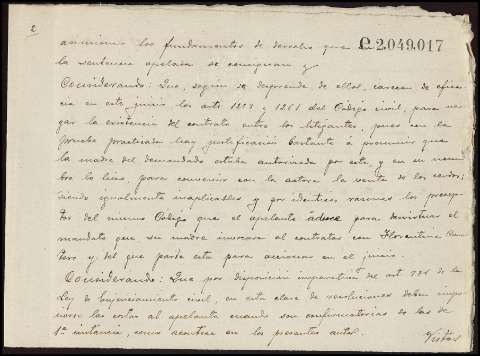 2
C 2.049.017
asimismo los fundamentos de derecho que en
la sentencia apelada se consignan y
Considerando: Que, según se desprende de ellos, carecen de efica-
cia en este juicio los arts 1259 y 1261 del Código civil, para ne-
gar la existencia del contrato entre los litigantes, pues con la
prueba practicada hay justificación bastante á presumir que
la madre del demandado estaba autorizada por este, y en su nom-
bre lo hizo, para convenir con la actora la venta de los cerdos;
siendo igualmente inaplicables y por idénticas razones los precep-
tos del mismo Código que el apelante aduce para desvirtuar el
mandato que su madre invocara al contratar con Florentina
y del que parte esta para accionar en el juicio.
Considerando: Que por disposición imperativa del art 736 de la
Ley de Enjuiciamiento civil, en esta clase de resoluciones deben impo-
nerse las costas al apelante cuando son confirmatorias de las de
1ª instancia, como acontece en los presentes autos.
Vistos